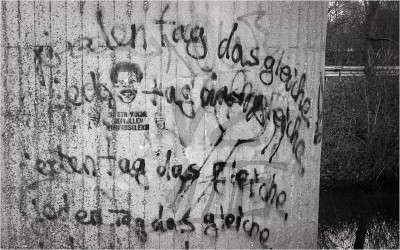 jeden tag das gleiche
jeden tag das gleiche
jeden tag das gleiche
jeden tag das gleiche